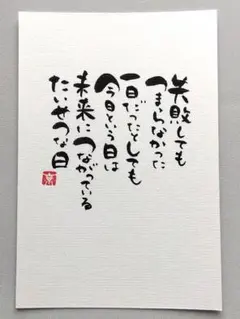 失敗しても
つまらなかった
一日だったとしても
今日という日は
未来につながっている
たいせつな日